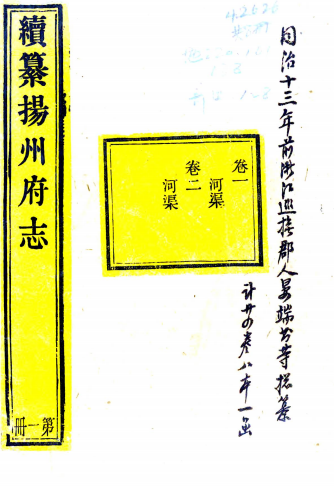 同治十三年前浙江巡撫郡人晏端书等總纂
计廿四卷八本一函
卷一
河渠
卷二
河渠
續纂揚州府志
第一册